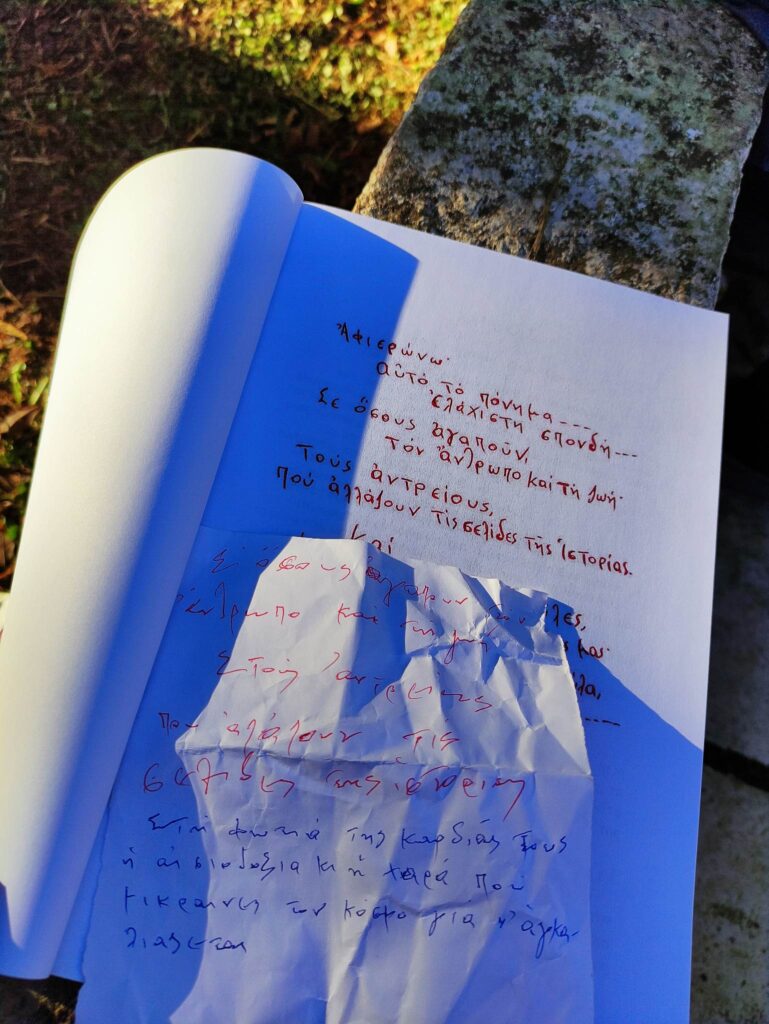 Ἀφιερώνω·
αὐτό, τό πόνημα----
ἐλάχιστη σπονδή---
Σέ ὅσους ἀγαποῦν,
τόν ἄνθρωπο καί τή ζωή·
Τούς ἀντρείους,
πού ἀλλάζουν τίς σελίδες τῆς ἱστορίας.
καί
Σ' ὅσους ἀγαποῦν
ἄνθρωπο και τη ζωή
Στούς ἀντρείους
που ἀλάζουν τις
σελίδες της ἱστορίας
Στή φωτιά της καρδιάς τους
ἡ αἰσιοδοξία κι ἡ χαρά που
μικραίνει τον κόσμο γιά ν' ἀγκα-
λιάζεται